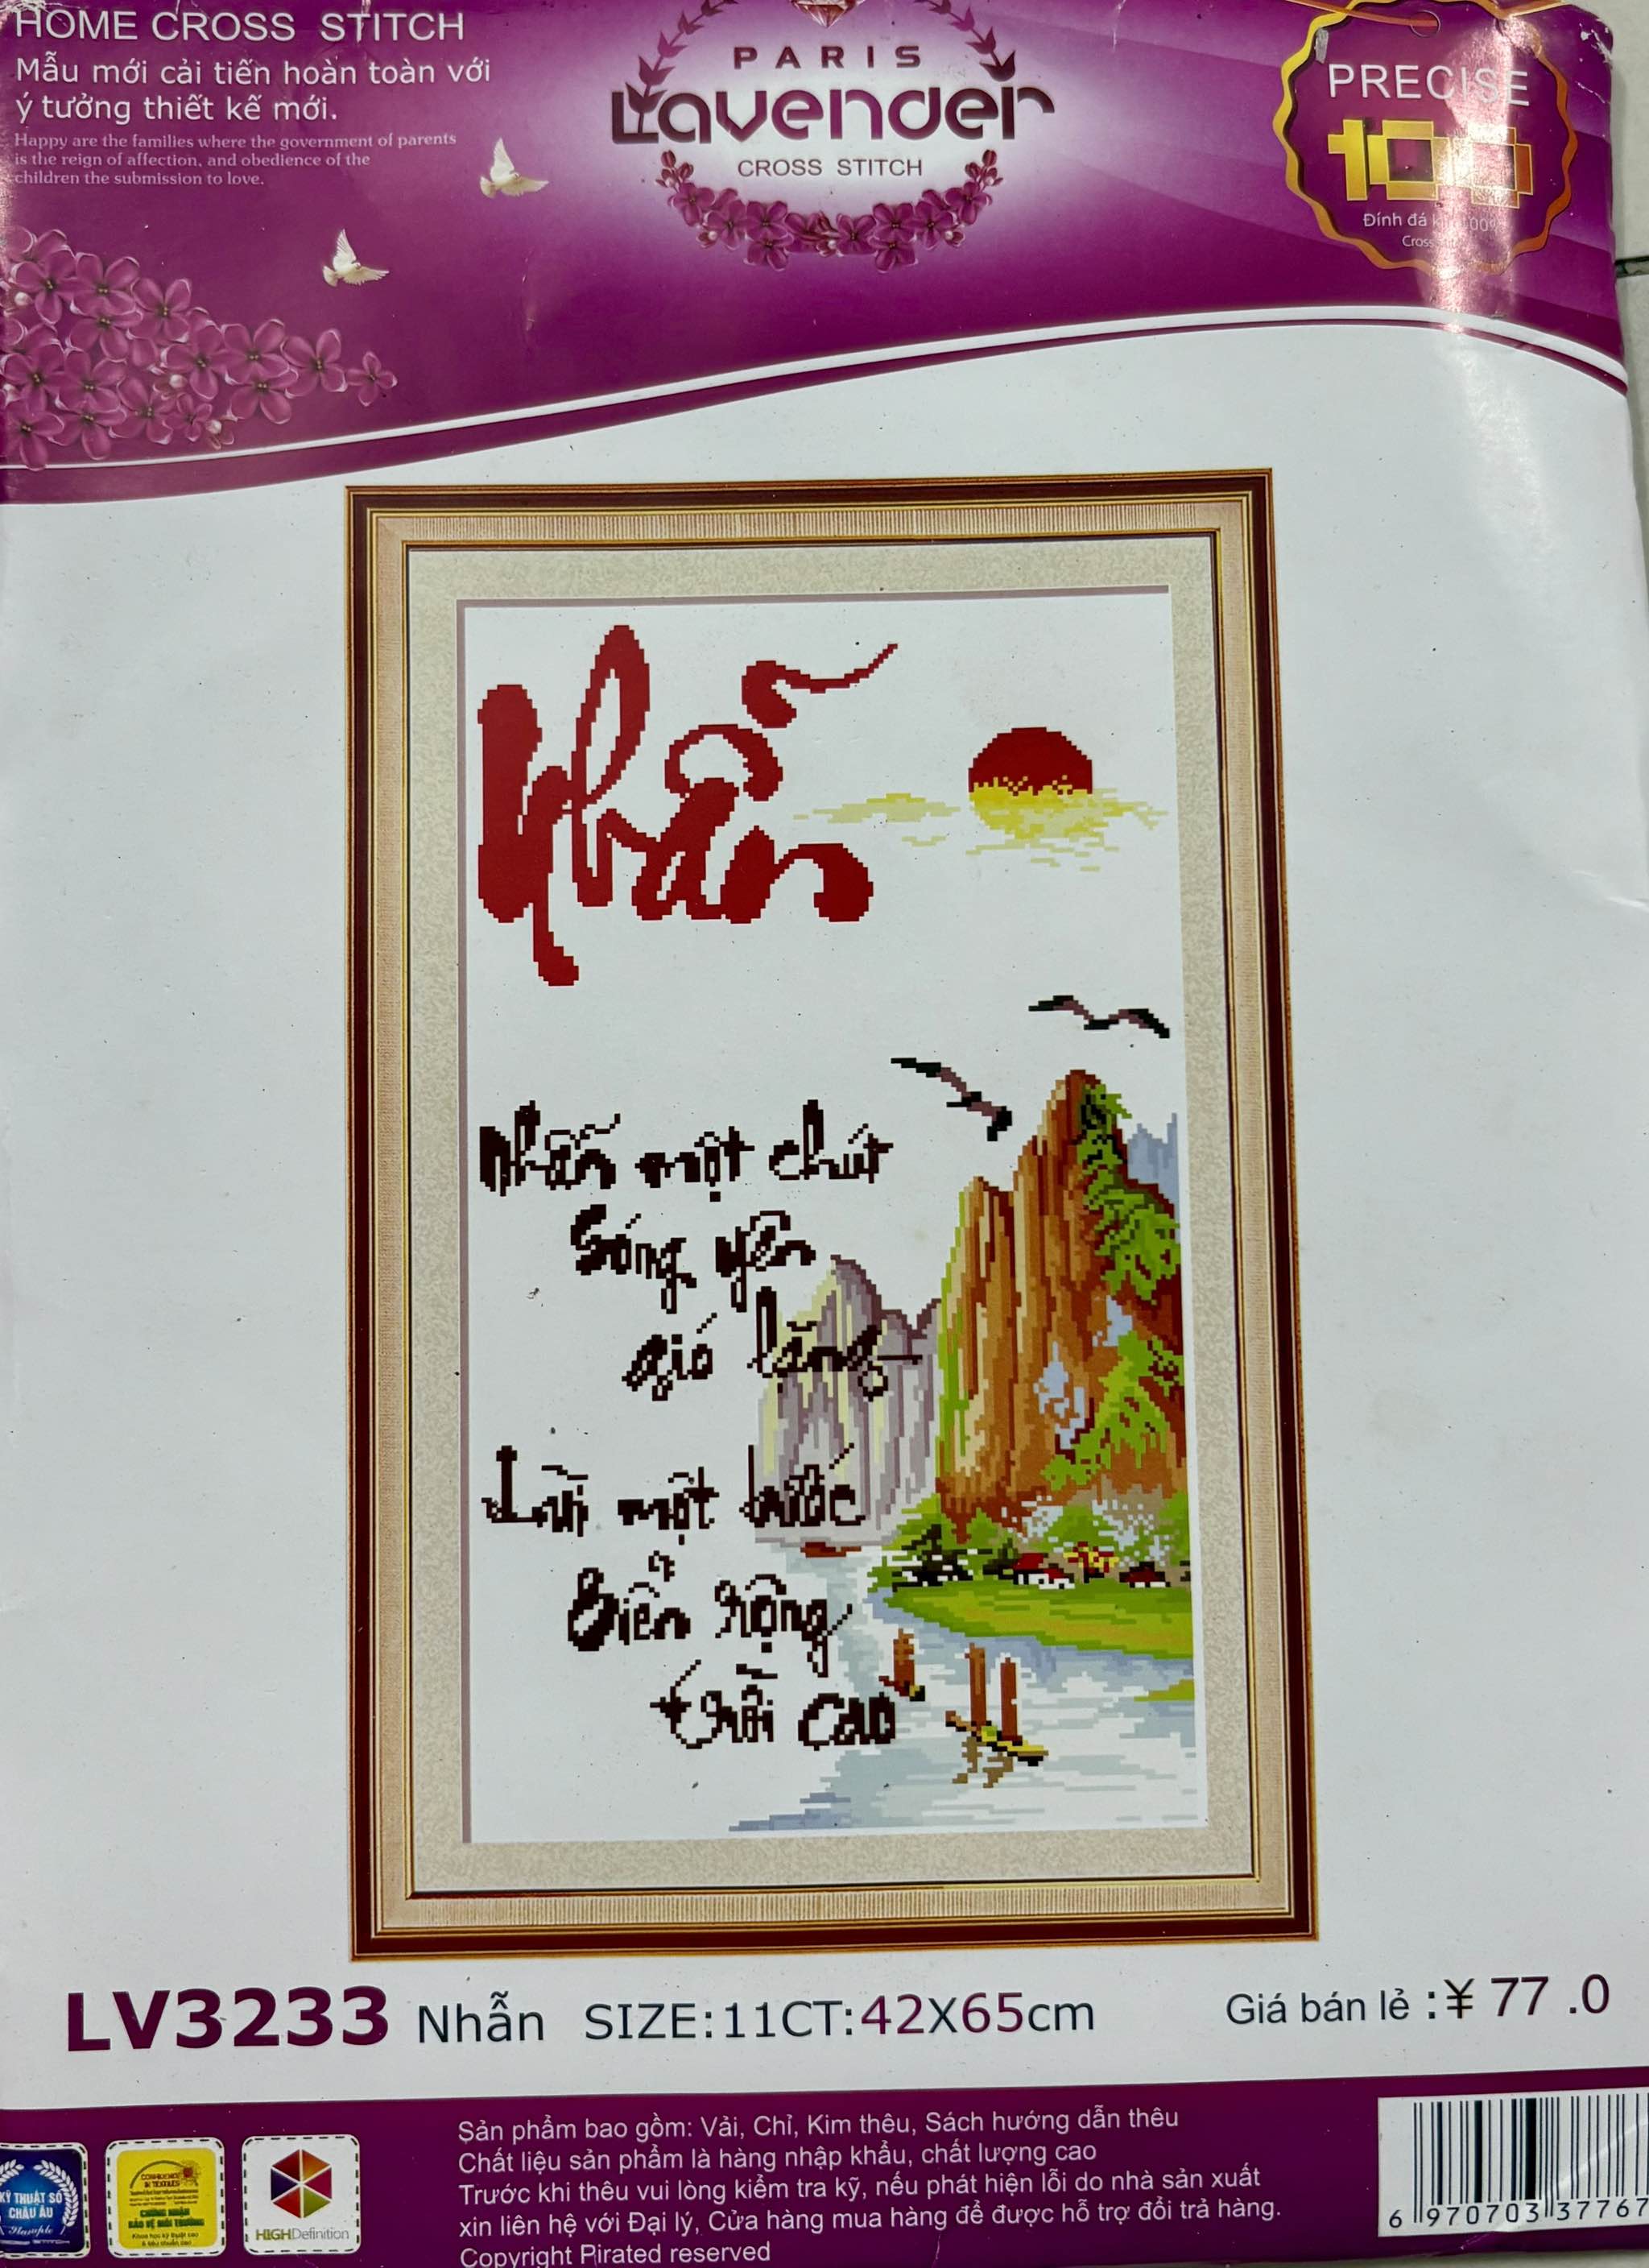 HOME CROSS STITCH
Mẫu mới cải tiến hoàn toàn với
ý tưởng thiết kế mới.
Happy are the families where the government of parents
is the reign of affection, and obedience of the
children the submission to love.
PARIS
Lavender
CROSS STITCH
PRECISE
100
Đính đá
Cross
Nhẫn
Nhẫn một chút
Sóng yên
gió lặng
Lùi một bước
Biển rộng
trời cao
LV3233 Nhẫn SIZE:11CT:42X65cm Giá bán lẻ :¥ 77 .0
KỸ THUẬT SỐ
CHÂU ÂU
CONFIDENCE
IN TEXTILES
CHỨNG NHẬN
BẢO VỆ MÔI TRƯỜNG
HIGHDefinition
Sản phẩm bao gồm: Vải, Chỉ, Kim thêu, Sách hướng dẫn thêu
Chất liệu sản phẩm là hàng nhập khẩu, chất lượng cao
Trước khi thêu vui lòng kiểm tra kỹ, nếu phát hiện lỗi do nhà sản xuất
xin liên hệ với Đại lý, Cửa hàng mua hàng để được hỗ trợ đổi trả hàng.
Copyright Pirated reserved
6 970703 37767